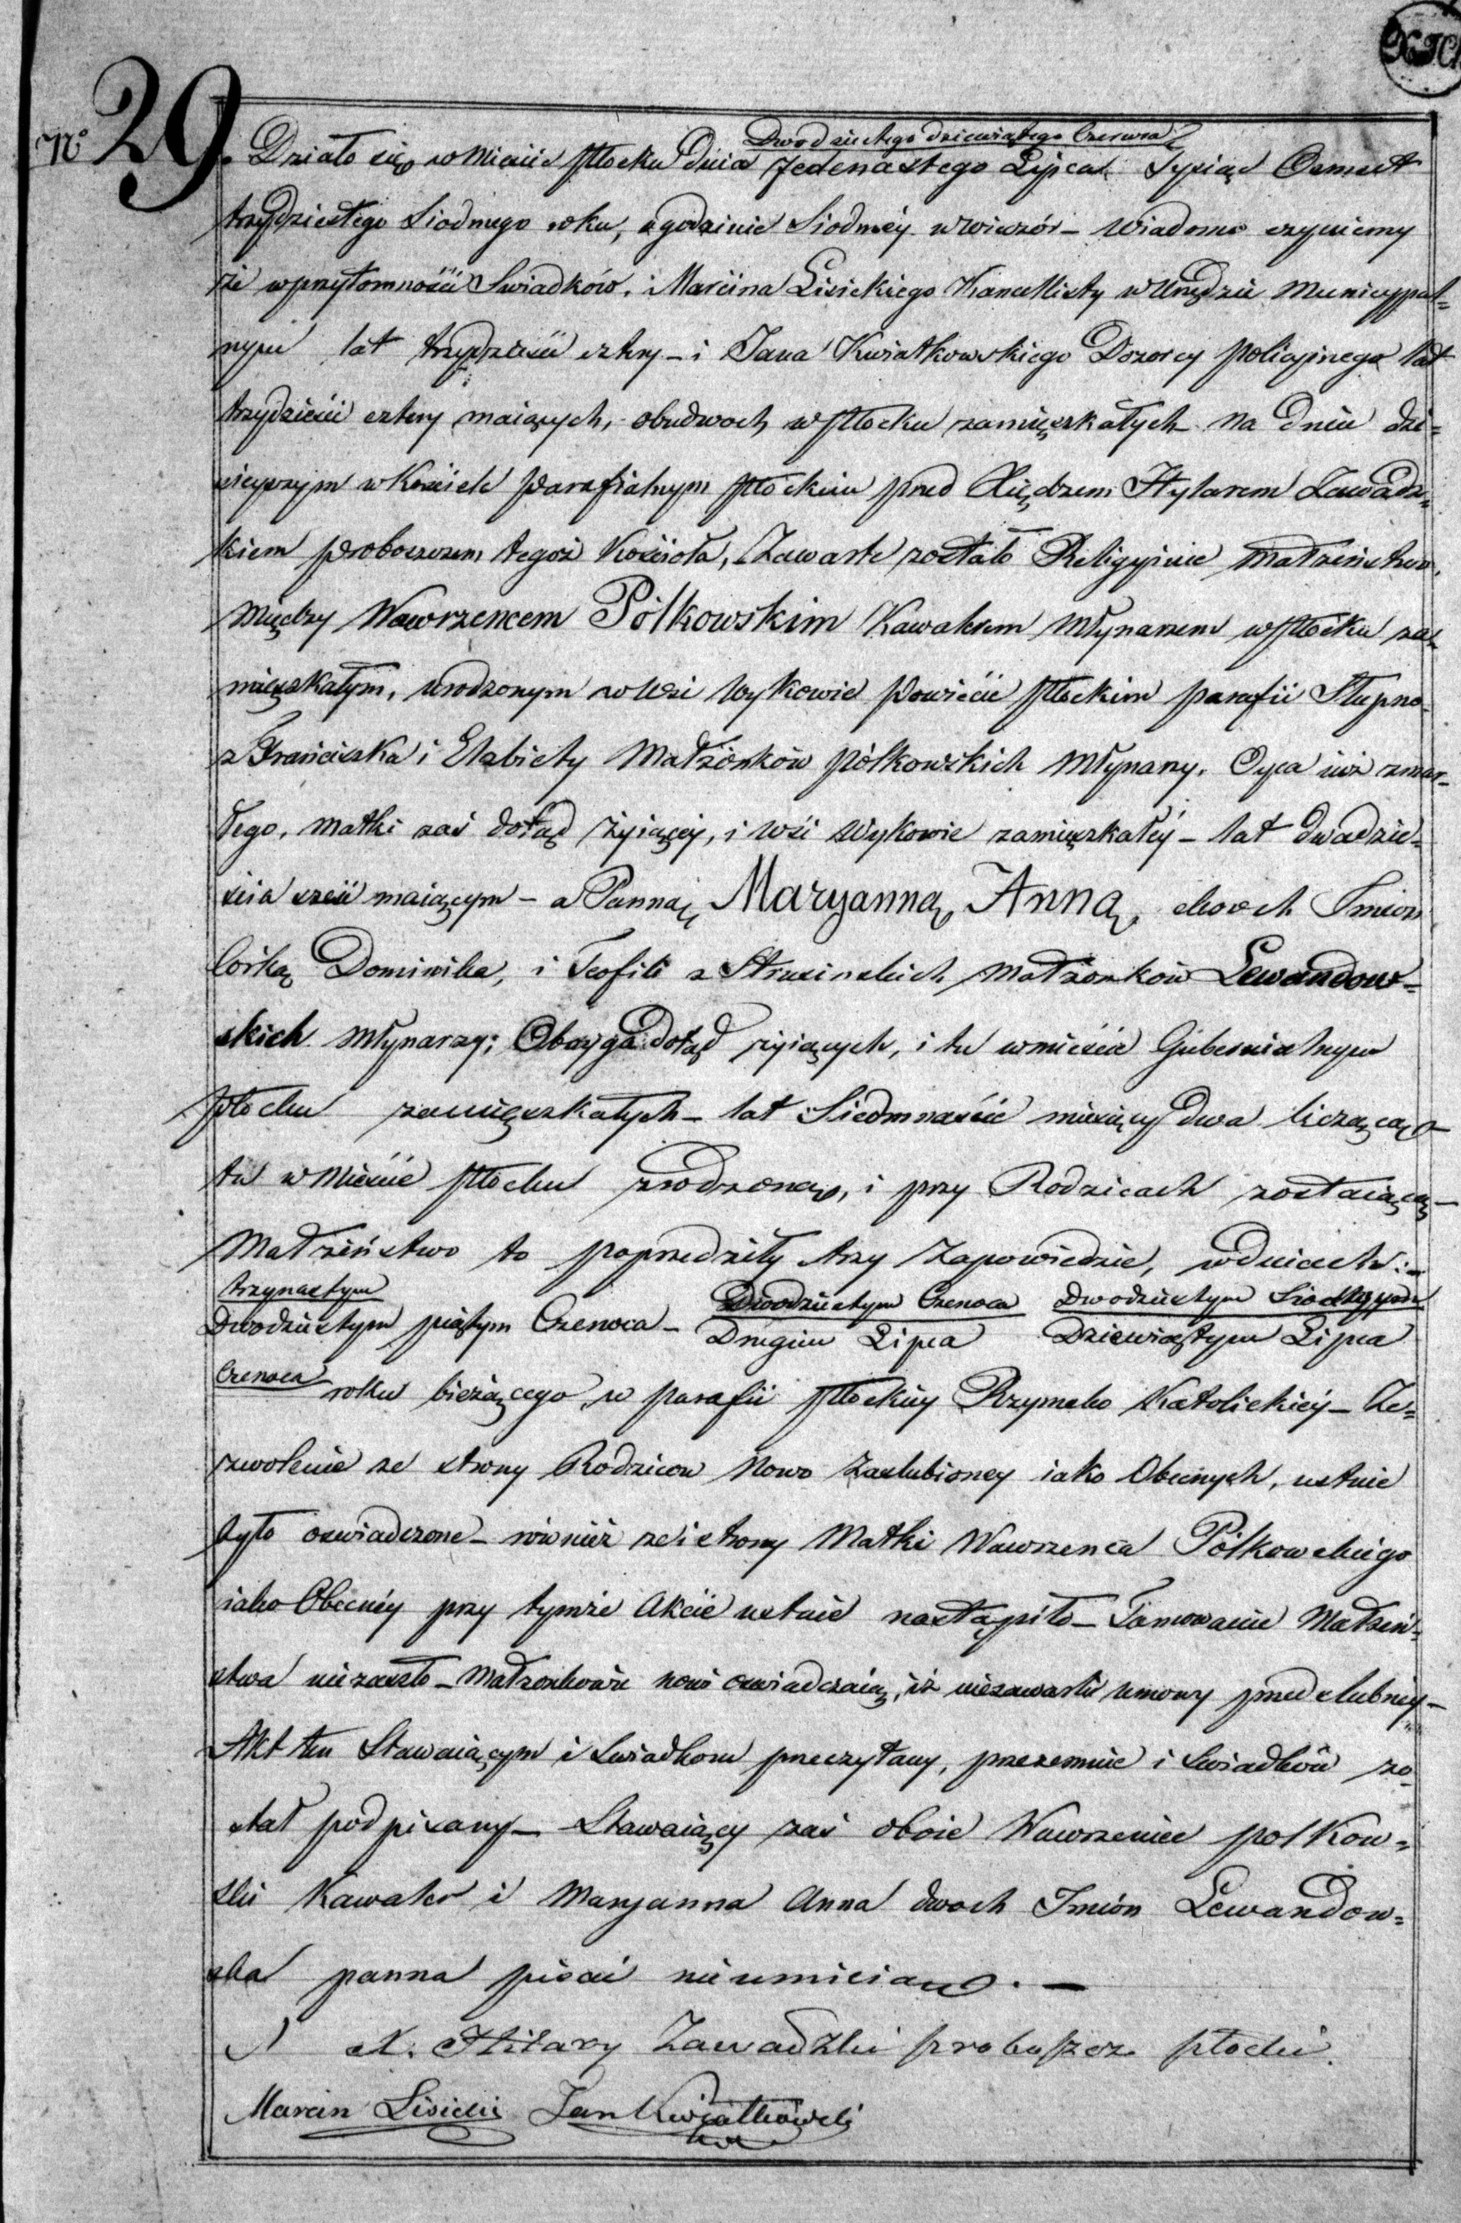 No 29
Dwodziestego dziewiątego Czerwca
Działo się w Mieście Płocku Dnia Jedenastego Lipca Tysiąc Osmset
trzydziestego Siodmego roku, o godzinie Siodmey w wieczór – Wiadomo czyniemy
że w przytomności Swiadków, i Marcina Lisickiego Kancellisty w Urzędzie Municypal-
nym lat trzydzieści cztery – i Jana Kwiatkowskiego Dozorcy policyinego lat
trzydzieści cztery maiących, obudwoch w Płocku zamięszkałych na dniu dzi-
sieyszym w Kościele Parafialnym Płockim przed Xiędzem Hylarem Zawadz-
kiem proboszczem tegoż Kościoła, Zawarte zostało Religyinie Małżeństwo,
między Wawrzencem Pólkowskim Kawalerem Młynarzem w Płocku za-
mięszkałym, urodzonym w Wsi Wykowie Powiecie Płockim parafii Słupno
z Franciszka i Elzbiety Małżonków Pólkowskich Młynarzy, Oyca iuż zmar-
łego, Matki zaś dotąd żyiącey, i Wsi Wykowie zamięszkałéy – lat dwadzie-
ścia sześć maiącym – a Panną Maryanną Anną, dwoch Imion
Corką Dominika, i Teofili z Struzinskich Małżonków Lewandow-
skich Młynarzy; Oboyga dotąd żyiących, i tu w mieście Gubernialnym
Płocku zamięszkałych – lat Siedmnaście miesięcy Dwa liczącą –
tu w Mieście Płocku zrodzoną, i przy Rodzicach zostaiącą –
Małżeństwo to poprzedziły trzy Zapowiedzie, w dniach: –
trzynastym Dwodziestym Czerwca Dwodziestym
Dwodziestym piątym Czerwca – Drugim Lipca Dziewiątym Lipca
Czerwca roku bieżącego w parafii Płockiey Rzymsko Katolickiéy – Ze-
zwolenie ze strony Rodzicow Nowo Zaslubioney iako Obecnych, ustnie
było oswiadczone – rówńież ze strony Matki Wawrzenca Pólkowskiego
iako Obecnéy przy tymże Akcie ustnie nastąpiło – Tamowanie Małżeń-
stwa niezaszło – Małżonkowie nowi oswiadczaią, iż niezawarli umowy przedslubney –
Akt ten Stawaiącym i Swiadkom przeczytany, przezemnie i Swiadków zo-
stał podpisany – Stawaiący zaś oboie Wawrzeniec polkow-
ski Kawaler i Maryanna Anna dwoch Imión Lewandow-
ska panna pisać nieumieią. –
X. Hilary Zawadzki proboszcz płocki.
Marcin Lisicki Jan Kwiatkowski